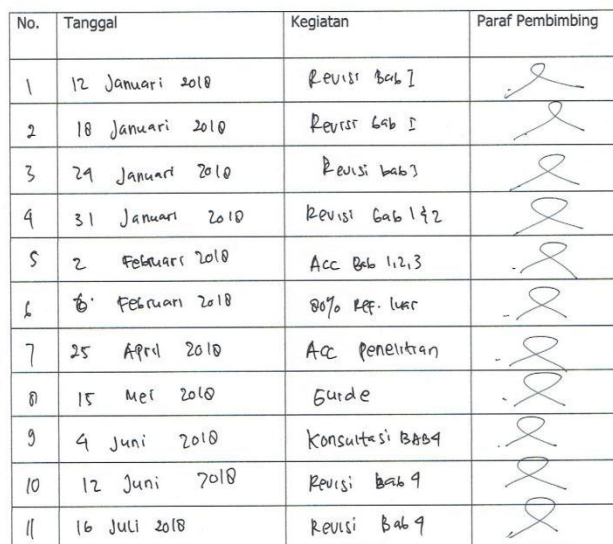 No. Tanggal Kegiatan Paraf Pembimbing
1 12 Januari 2018 Revisi Bab I
2 18 Januari 2018 Revisi bab I
3 24 Januari 2018 Revisi bab 3
4 31 Januari 2018 Revisi bab 1 & 2
5 2 Februari 2018 Acc Bab 1,2,3
6 6 Februari 2018 80% Ref. luar
7 25 April 2018 Acc penelitian
8 15 Mei 2018
9 4 Juni 2018 Konsultasi BAB 4
10 12 Juni 2018 Revisi Bab 4
11 16 Juli 2018 Revisi Bab 4